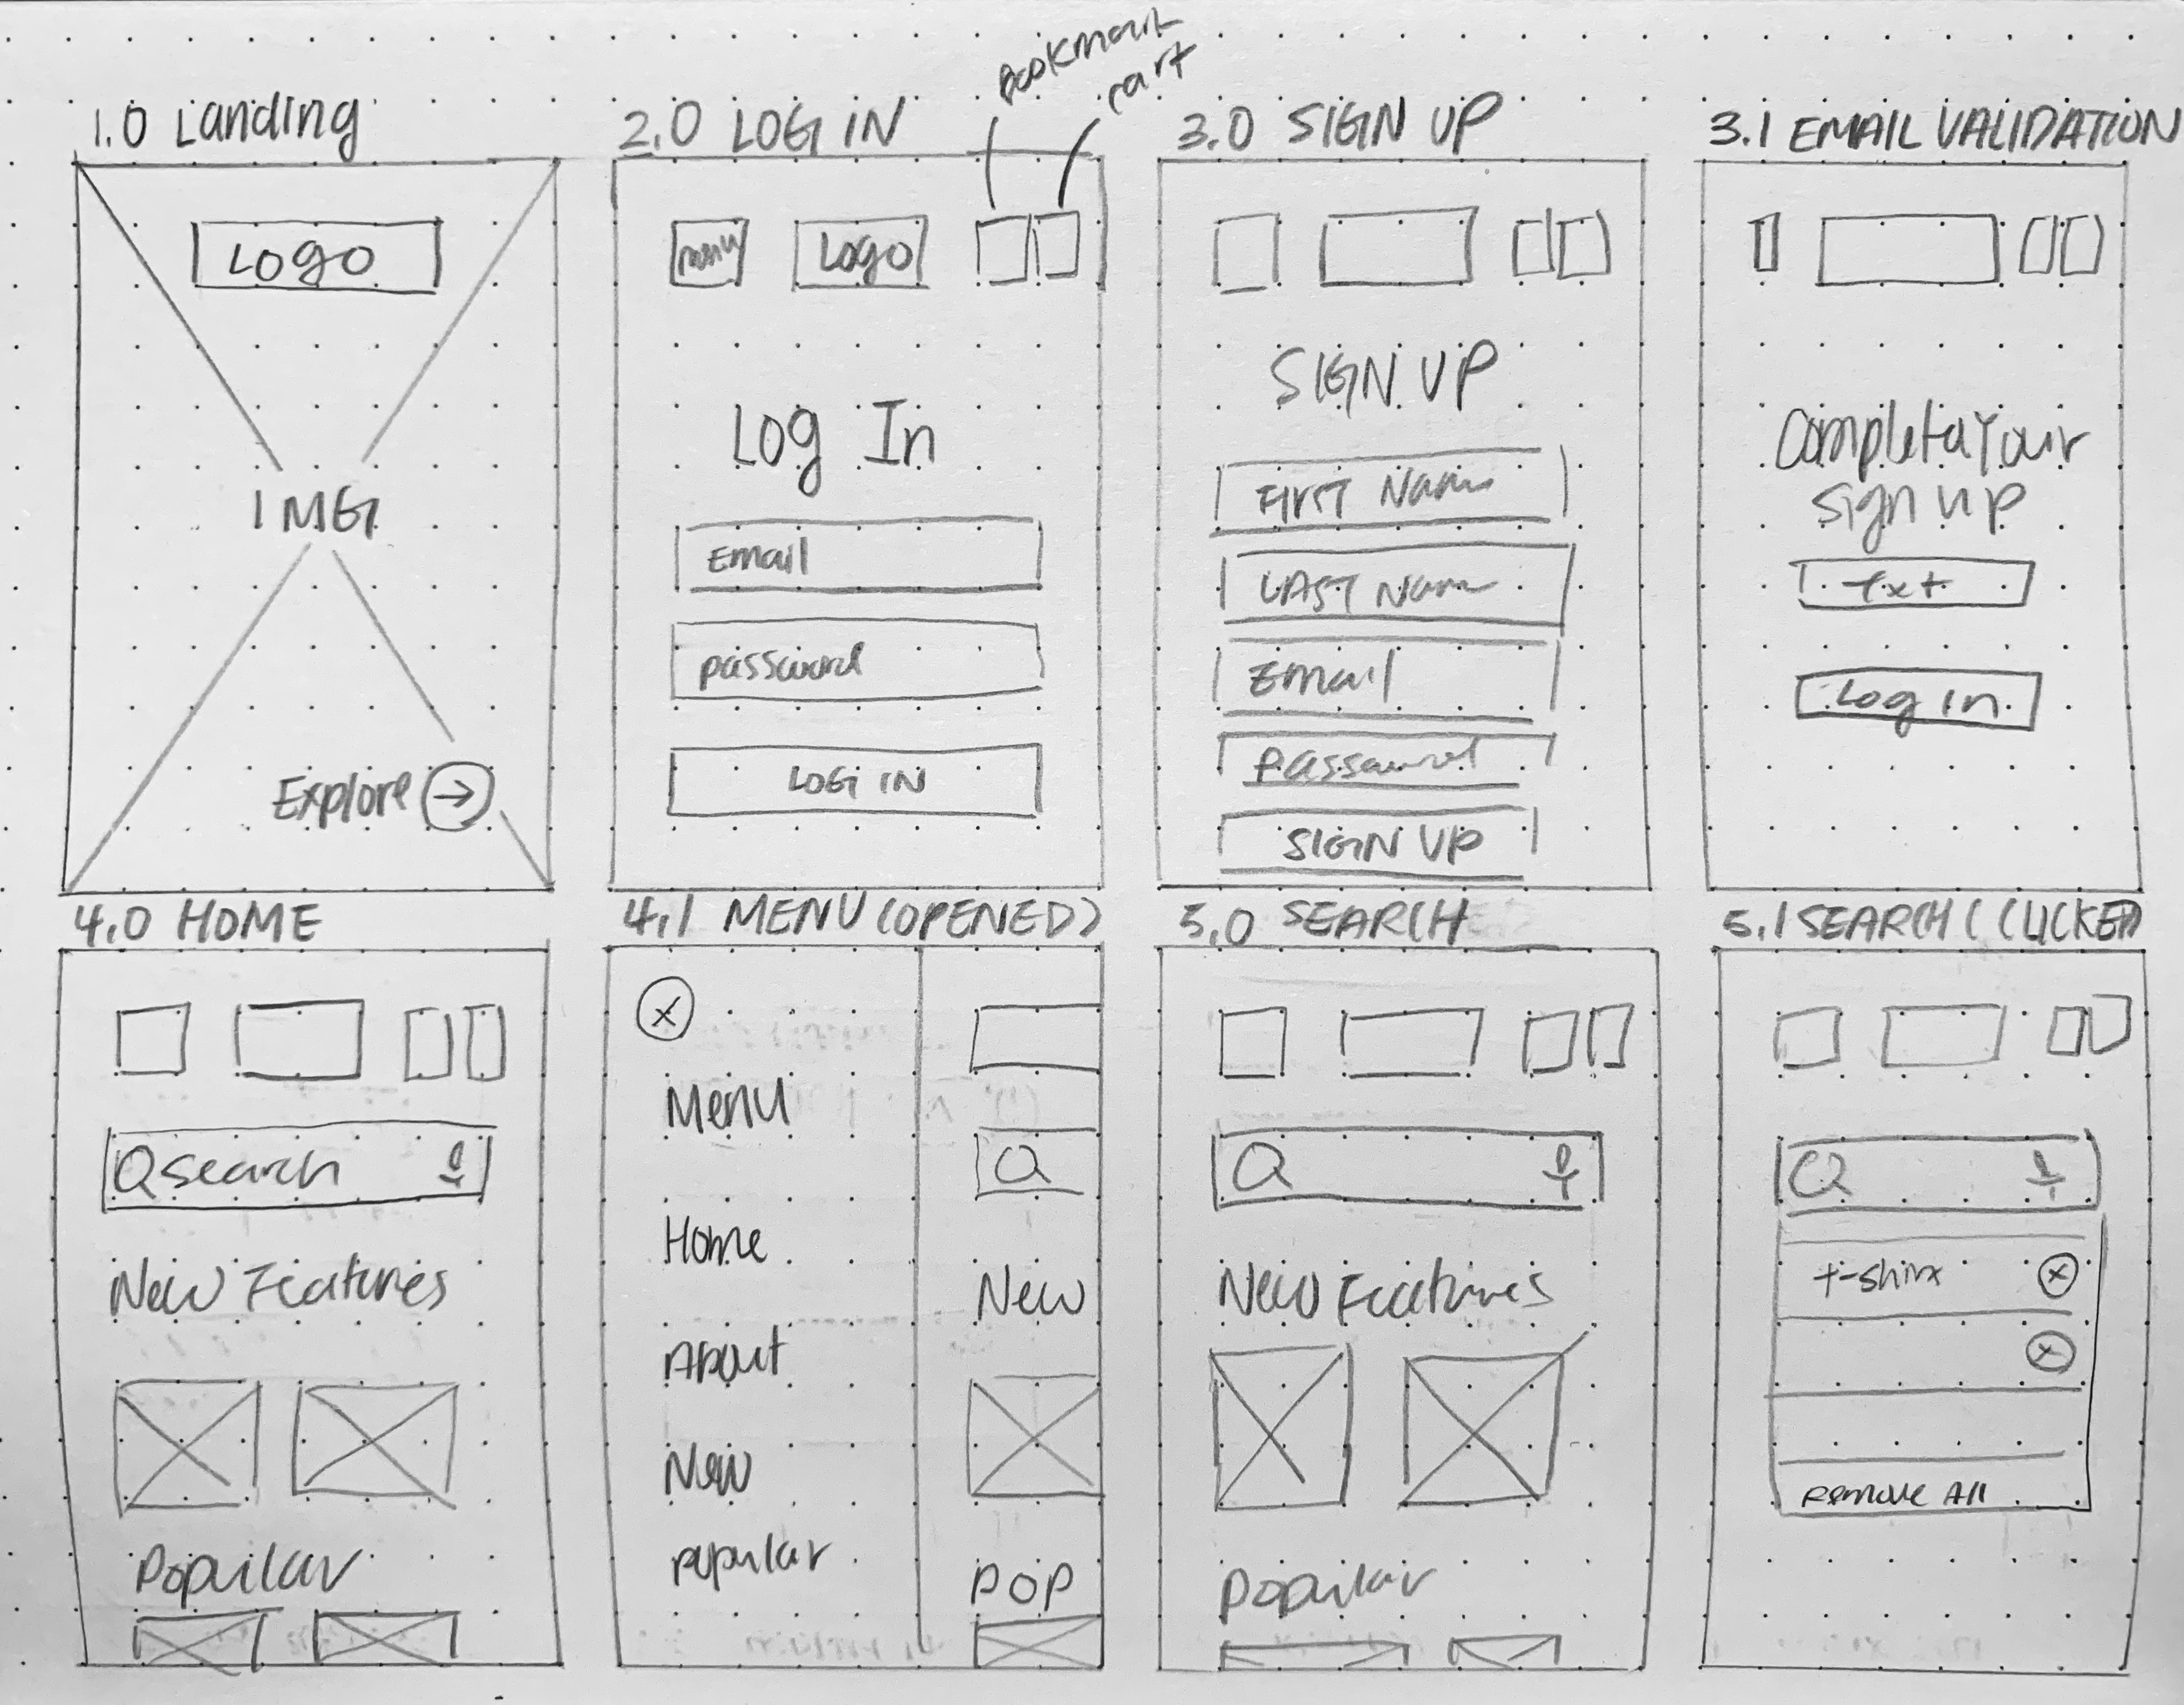 Bookmark
cart
1.0 Landing
Logo
IMG
Explore →
2.0 LOG IN
menu
Logo
Log In
Email
password
LOG IN
3.0 SIGN UP
SIGN UP
FIRST Name
LAST Name
Email
Password
SIGN UP
3.1 EMAIL VALIDATION
Complete Your
sign up
txt
Log in
4.0 HOME
search
New Features
Popular
4.1 MENU (OPENED)
X
Menu
Home
About
New
popular
New
POP
5.0 SEARCH
New Features
Popular
5.1 SEARCH (CLICKED)
t-shirt X
X
Remove All